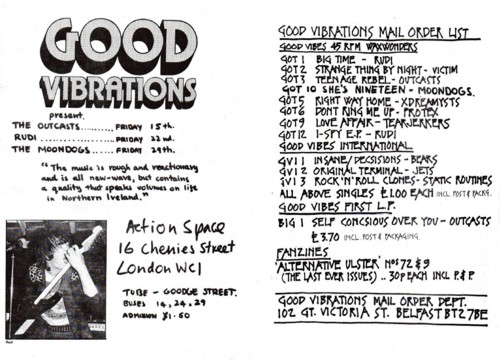 GOOD
VIBRATIONS
present.
THE OUTCASTS....... FRIDAY 15th.
RUDI............... FRIDAY 22nd.
THE MOONDOGS... FRIDAY 29th.
"The music is rough and reactionary
and is all new-wave, but contains
a quality that speaks volumes on life
in Northern Ireland."
Action Space
16 Chenies Street
London WC1
TUBE - GOODGE STREET.
BUSES 14, 24, 29
ADMISSION £1.50
GOOD VIBRATIONS MAIL ORDER LIST
GOOD VIBES 45 RPM WAXWONDERS
GOT 1 BIG TIME - RUDI
GOT 2 STRANGE THING BY NIGHT - VICTIM
GOT 3 TEENAGE REBEL - OUTCASTS
GOT 10 SHE'S NINETEEN - MOONDOGS.
GOT 5 RIGHT WAY HOME - XDREAMYSTS
GOT 6 DON'T RING ME UP - PROTEX
GOT 9 LOVE AFFAIR - TEARJERKERS
GOT 12 I-SPY E.P. - RUDI
GOOD VIBES INTERNATIONAL
GVI 1 INSANE/DECSISIONS - BEARS
GVI 2 ORIGINAL TERMINAL - JETS
GVI 3 ROCK 'N' ROLL CLONES - STATIC ROUTINES
ALL ABOVE SINGLES £1.00 EACH INCL. POST & PACKG.
GOOD VIBES FIRST L.P.
BIG 1 SELF CONCSIOUS OVER YOU - OUTCASTS
£3.70 INCL. POST & PACKAGING.
FANZINES
'ALTERNATIVE ULSTER' Nos 72 & 9
(THE LAST EVER ISSUES) .. 30p EACH INCL P. & P
GOOD VIBRATIONS MAIL ORDER DEPT.
102 GT. VICTORIA ST. BELFAST BT2 7BE